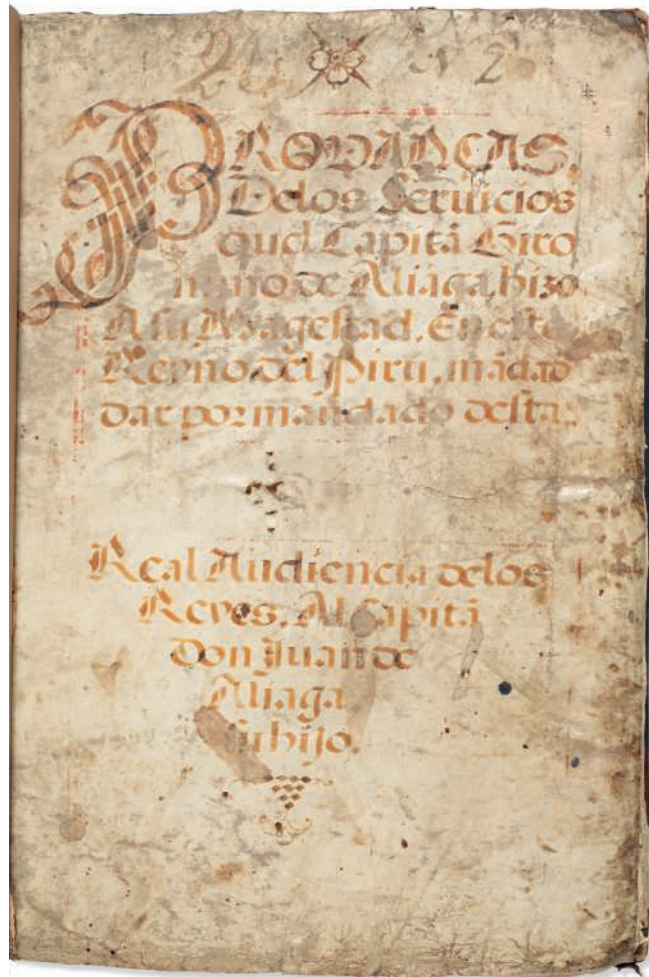 Nº 2
PROVANCAS,
De los Servicios
quel Capitã Giro
nimo de Aliaga, hizo
A su Magestad. En este
Reyno del Piru, mãdad
dar por mandado desta
Real Audiencia de los
Reyes. Al Capitã
Don Juan de
Aliaga
su hijo.